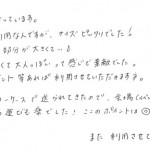 っています。
利用なんですが、サイズピッタリでした!
部分が大きくて…♪
くて大人っぽい って感じで素敵でした。
ント等あれば利用させていただきます。
ーケースが送られてきたので、会場
運びも楽でした! ここのポイントは◎
また 利用させて